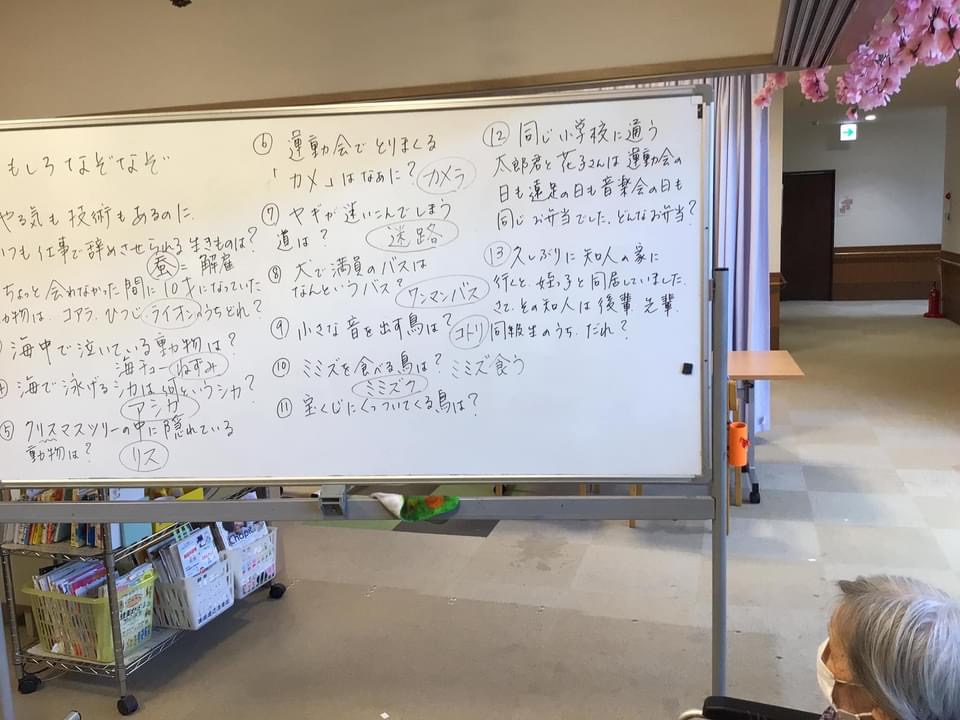 もしろなぞなぞ
やる気も技術もあるのに、
いつも仕事で辞めさせられる生きものは?
蚕=解雇
ちょっと会わなかった間に10才になっていた
動物は、コアラ、ひつじ、ライオンのうちどれ?
海中で泣いている動物は?
海チュー ねずみ
海で泳げるシカは何というシカ?
アシカ
⑤ クリスマスツリーの中に隠れている
動物は? リス
⑥ 運動会でとりまくる
「カメ」はなあに? カメラ
⑦ ヤギが迷いこんでしまう
道は? 迷路
⑧ 犬で満員のバスは
なんというバス? ワンマンバス
⑨ 小さな音を出す鳥は? コトリ
⑩ ミミズを食べる鳥は? ミミズ食う
ミミズク
⑪ 宝くじにくっついてくる鳥は?
⑫ 同じ小学校に通う
太郎君と花子さんは運動会の
日も遠足の日も音楽会の日も
同じお弁当でした。どんなお弁当?
⑬ 久しぶりに知人の家に
行くと、姪っ子と同居していました。
さて、その知人は後輩、先輩、
同級生のうち、だれ?